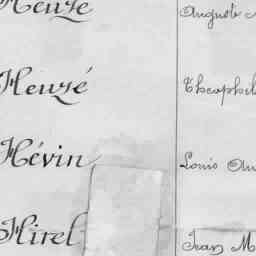 Heuzé Auguste
Heuzé Théophil
Hévin Louis Au
Hirel Jean M